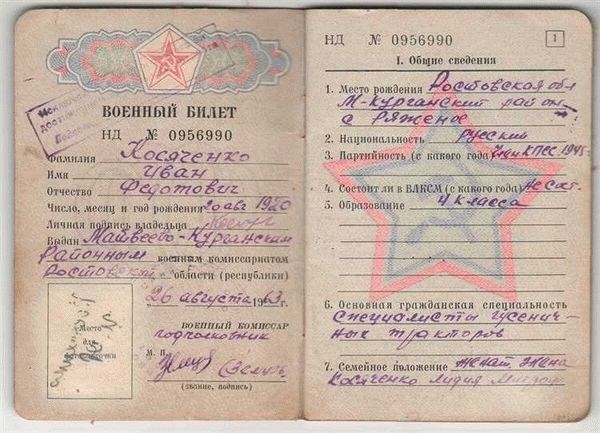 Исключ
достиг
ВОЕННЫЙ БИЛЕТ
НД № 0956990
Фамилия Косяченко
Имя Иван
Отчество Федотович
Число, месяц и год рождения 20 авг 1920
Личная подпись владельца
Выдан Матвеево-Курганским
районным военным комиссариатом
Ростовской области (республики)
26 августа 1963 г.
Место
для
ВОЕННЫЙ КОМИССАР
подполковник
М. П.
(звание, подпись)
НД № 0956990
1
I. Общие сведения
1. Место рождения Ростовская обл
М-Курганский район
с Ряженое
2. Национальность русский
3. Партийность (с какого года) член КПСС 1945
4. Состоит ли в ВЛКСМ (с какого года) не сост.
5. Образование 4 класса
6. Основная гражданская специальность
специалисты гусенич-
ных тракторов
7. Семейное положение женат. жена
Косяченко Лидия